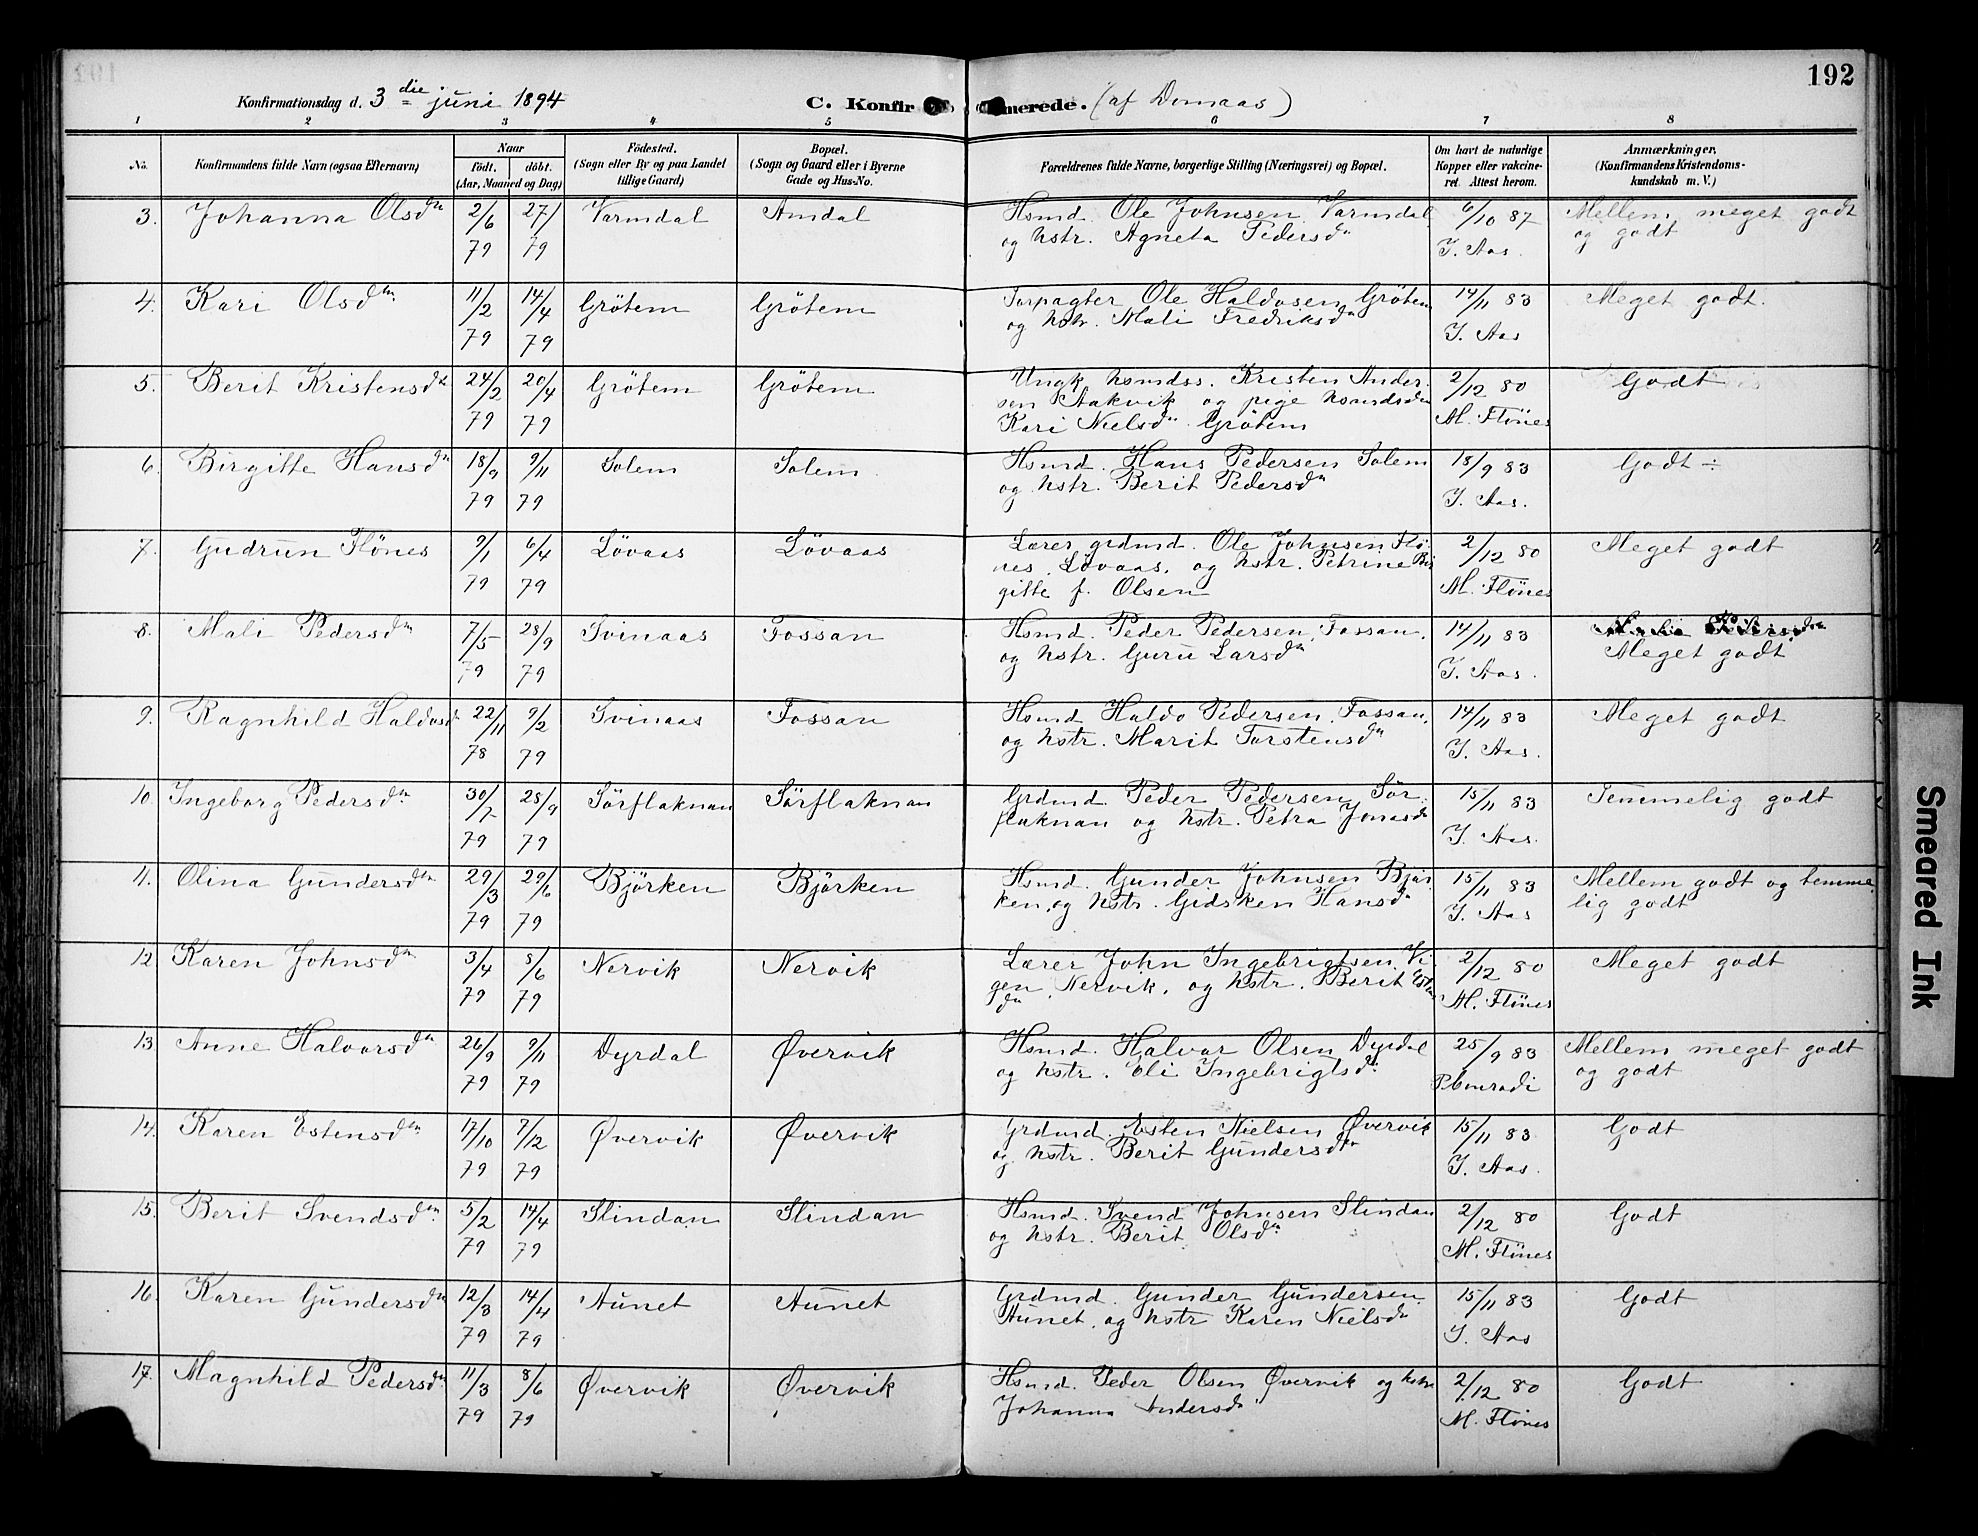 192
Konfirmationsdag d. 3die juni 1894 C. Konfir merede. (af Domaas)
1 2 3 4 5 6 7 8
No. Konfirmandens fulde Navn (ogsaa Efternavn) Naar født. døbt. (Aar, Maaned og Dag) Fødested. (Sogn eller By og paa Landet tillige Gaard) Bopæl. (Sogn og Gaard eller i Byerne Gade og Hus-No. Forældrenes fulde Navne, borgerlige Stilling (Næringsvei) og Bopæl. Om havt de naturlige Kopper eller vakcineret. Attest herom. Anmærkninger. (Konfirmandens Kristendomskundskab m. V.)
3. Johanna Olsdtr 2/6 79 27/ 79 Varmdal Amdal Hsmd. Ole Johnsen Varmdal
og hstr. Agneta Pedersdtr 6/10 87
I. Aas. Mellem meget godt
og godt
4. Kari Olsdtr 11/2 79 14/4 79 Grötem Grötem Forpagter Ole Haldosen Grötem
og hstr. Mali Fredriksdtr 14/11 83
I. Aas Meget godt.
5. Berit Kristensdtr 24/2 79 20/4 79 Grötem Grötem Ungk. hsmdss. Kristen Ander-
sen Aakvik og pige hsmdsdtr
Kari Nielsdtr Grötem 2/12 80
M. Flönes Godt
6. Birgitte Hansdtr 18/9 79 9/11 79 Solem Solem Hsmd. Hans Pedersen Solem
og hstr. Berit Pedersdtr 18/9 83
I. Aas. Godt ÷
7. Gudrun Flönes 9/1 79 6/4 79 Lövaas Lövaas Lærer, grdmd. Ole Johnsen Flö-
nes, Lövaas, og hstr. Petrine Bir
gitte f. Olsen 2/12 80
M. Flönes Meget godt
8. Mali Pedersdtr 7/5 79 28/9 79 Svinaas Fossan Hsmd. Peder Pedersen, Fossan,
og hstr. Guru Larsdtr 14/11 83
I. Aas.
Meget godt
9. Ragnhild Haldosd 22/11 78 9/2 79 Svinaas Fossan Hsmd. Haldo Pedersen, Fossan,
og hstr. Marit Torstensdtr 14/11 83
I. Aas. Meget godt
10. Ingeborg Pedersdtr 30/7 79 28/9 79 Sörflaknan Sörflaknan Grdmd. Peder Pedersen Sör
flaknan og hstr. Petra Jonasdtr 15/11 83
I. Aas. Temmelig godt
11. Olina Gundersdtr 29/3 79 29/6 79 Björken Björken Hsmd. Gunder Johnsen Björ
ken, og hstr. Gidsken Hansdtr 15/11 83
I. Aas Mellem godt og temme
lig godt
12. Karen Johnsdtr 3/4 79 8/6 79 Nervik Nervik Lærer John Ingebrigtsen Vi
gen, Nervik, og hstr. Berit Esten
dtr 2/12 80
M. Flönes Meget godt
13. Anne Halvorsdtr 26/9 79 9/11 79 Dyrdal Øvervik Hsmd. Halvor Olsen Dyrdal
og hstr. Eli Ingebrigtsdtr 25/9 83
P. Conradi Mellem meget godt
og godt
14. Karen Estensdtr 17/10 79 7/12 79 Øvervik Øvervik Grdmd. Esten Nielsen Øvervik
og hstr. Berit Gundersdtr 15/11 83
I. Aas. Godt
15. Berit Svendsdtr 5/2 79 14/4 79 Slindan Slindan Hsmd. Svend Johnsen Slindan
og hstr. Berit Olsdtr 2/12 80
M. Flönes Godt
16. Karen Gundersdtr 12/3 79 14/4 79 Aunet Aunet Grdmd. Gunder Gundersen
Aunet, og hstr Karen Nielsdtr 15/11 83
I. Aas Godt
17. Magnhild Pedersdtr 11/3 79 8/6 79 Øvervik Øvervik Hsmd. Peder Olsen Øvervik og hstr
Johanna Andersdtr 2/12 80
M. Flönes Godt
Smeared Ink